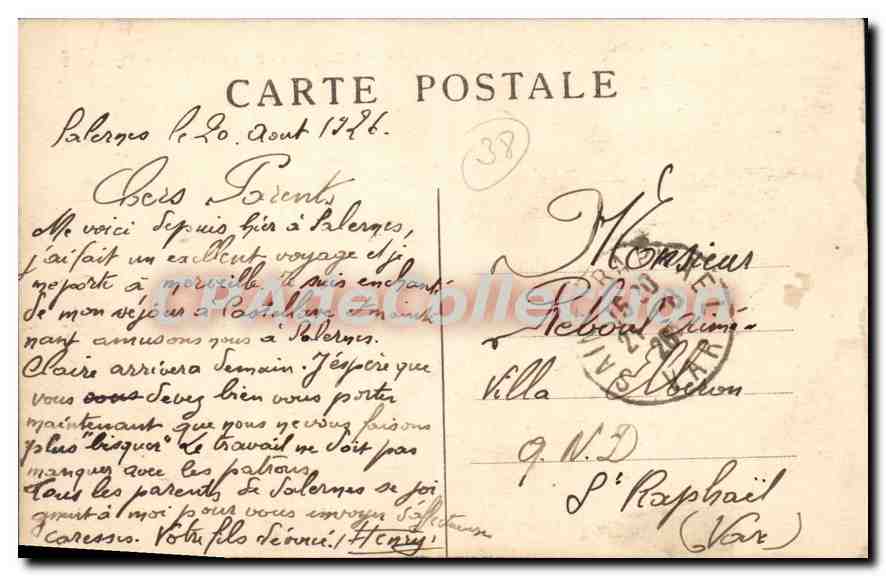 CARTE POSTALE
Salernes le 20. Aout 1926.
38
Chers Parents
Me voici depuis hier à Salernes,
j'ai fait un excellent voyage et je
me porte à merveille. Je suis enchanté
de mon séjour à Castellane et maint
nant amusons nous à Salernes.
Claire arrivera demain. J'espère que
vous devez bien vous porter
maintenant que nous ne vous faisons
plus "bisquer" Le travail ne doit pas
manquer avec les patrons.
Tous les parents de Salernes se joi
gnent à moi pour vous envoyer d'affectueuses
caresses. Votre fils dévoué, Henry.
Monsieur
Reboul Aimé
Villa Obéron
q. N. D
St Raphaël
(Var)
SAINT RAPHAEL
15 30
21 8
26
VAR
CPArteCollection